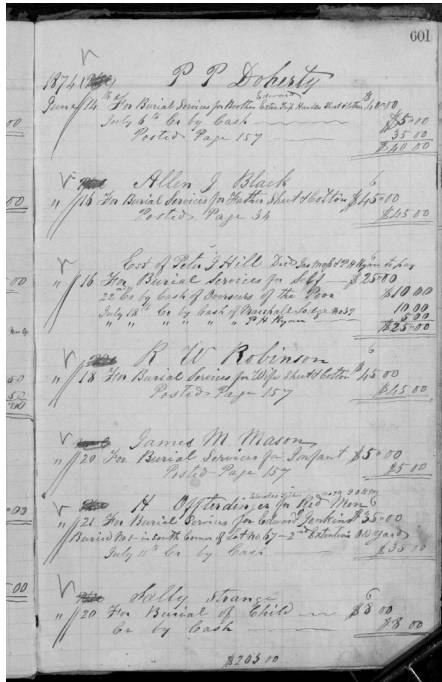 601
1874
P P Doherty
June 14th For Burial Services for Brother Edward Extra Trip Hearse Shert & Cotton $40.00
July 6th Cr by Cash $5.00
Posted Page 157 35.00
$40.00
Allen J Black
" 16 For Burial Services for Father Shert & Cotton $45.00
Posted Page 34 $45.00
Est of Peter J Hill Died & P H Ryan to pay
" 16 For Burial Services for Self $25.00
22nd Cr by Cash of Overseers of the Poor $10.00
July 18th Cr by Cash of Marshall Lodge No 39 10.00
" " " " " " P H Ryan 5.00
$25.00
R W Robinson
" 18 For Burial Services for Wife Shert & Cotton $45.00
Posted Page 157 $45.00
James M Mason
" 20 For Burial Services for Infant $5.00
Posted Page 157 $5.00
H Offterdinger for Red Men
" 21 For Burial Services for Edward Jenkins $35.00
Buried No 1 in South Corner of Lot No 67 - 2nd Extention Old Yard
July 11th Cr by Cash $35.00
Sally Strange
" 20 For Burial of Child $8.00
Cr by Cash $8.00
$203.00